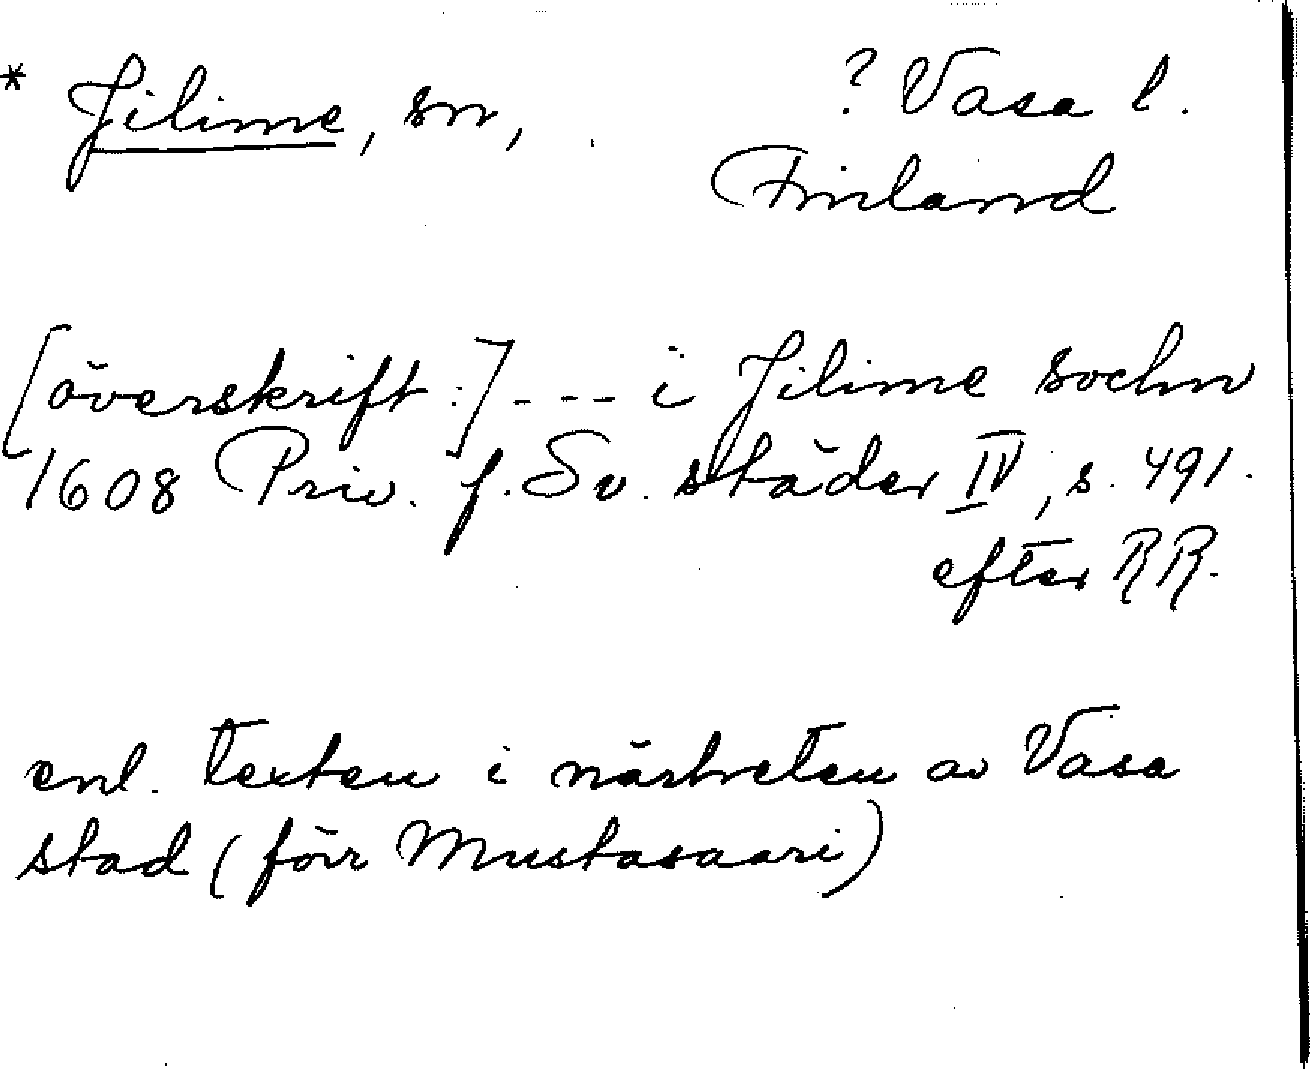 * Jilime, sn, ? Vasa l.
Finland
[överskrift:] ---- i Jilime sochn
1608 Priv. f. Sv. städer IV, s. 491.
efter RR.
enl. texten i närheten av Vasa
stad (förr Mustasaari)